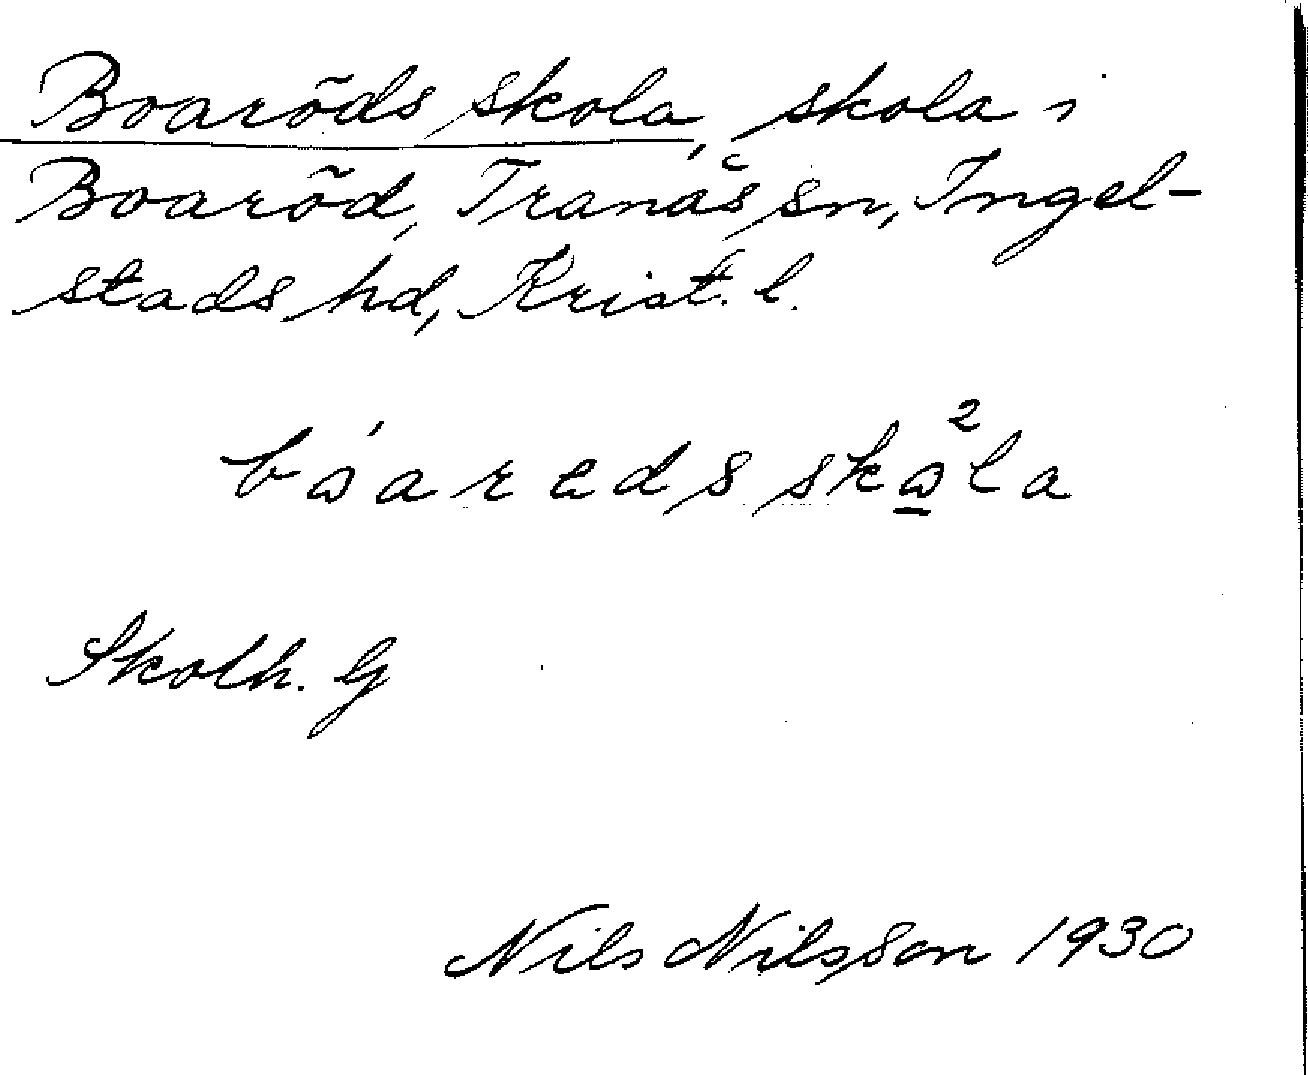 Boaröds skola, skola i
Boaröd, Tranås sn, Ingel-
stads hd, Krist. l.
bóaredsskå̱²la
Skolh. G
Nils Nilsson 1930